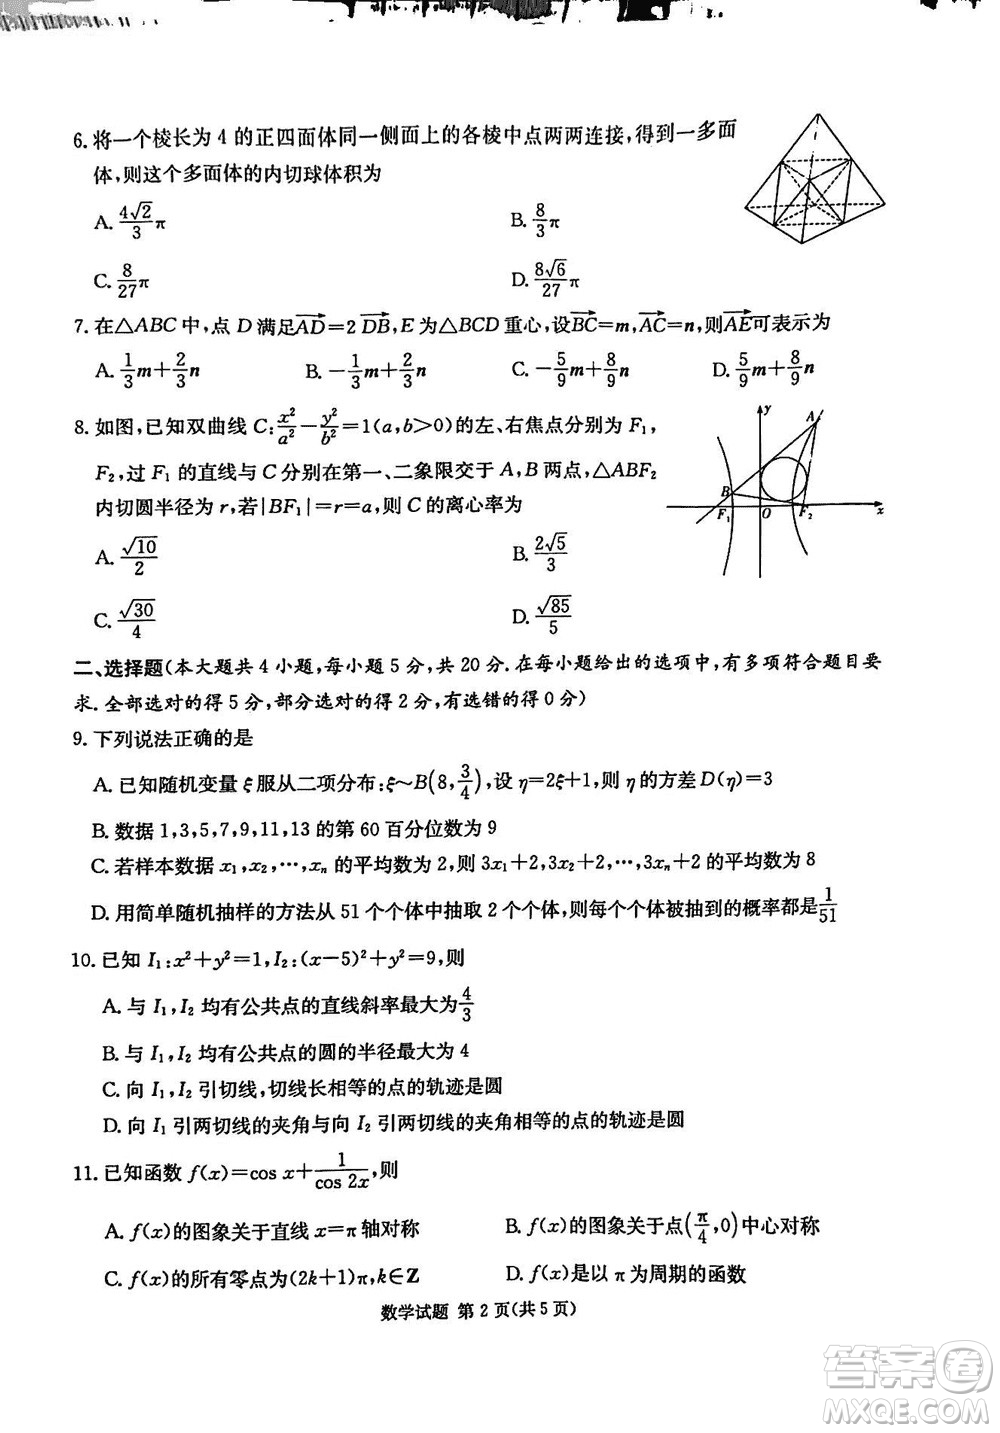 6. 将一个棱长为 4 的正四面体同一侧面上的各棱中点两两连接,得到一多面
体,则这个多面体的内切球体积为
A. \frac{4\sqrt{2}}{3}π B. \frac{8}{3}π
C. \frac{8}{27}π D. \frac{8\sqrt{6}}{27}π
7. 在△ABC 中,点 D 满足\overrightarrow{AD}=2\overrightarrow{DB},E 为△BCD 重心,设\overrightarrow{BC}=m,\overrightarrow{AC}=n,则\overrightarrow{AE}可表示为
A. \frac{1}{3}m+\frac{2}{3}n B. -\frac{1}{3}m+\frac{2}{3}n C. -\frac{5}{9}m+\frac{8}{9}n D. \frac{5}{9}m+\frac{8}{9}n
8. 如图,已知双曲线 C:\frac{x^2}{a^2}-\frac{y^2}{b^2}=1(a,b>0)的左、右焦点分别为 F₁,
F₂,过 F₁ 的直线与 C 分别在第一、二象限交于 A,B 两点,△ABF₂
内切圆半径为 r,若|BF₁|=r=a,则 C 的离心率为
y
A
B
F₁ O F₂ x
A. \frac{\sqrt{10}}{2} B. \frac{2\sqrt{5}}{3}
C. \frac{\sqrt{30}}{4} D. \frac{\sqrt{85}}{5}
二、选择题(本大题共 4 小题,每小题 5 分,共 20 分.在每小题给出的选项中,有多项符合题目要
求.全部选对的得 5 分,部分选对的得 2 分,有选错的得 0 分)
9. 下列说法正确的是
A. 已知随机变量 ξ 服从二项分布:ξ~B(8,\frac{3}{4}),设 η=2ξ+1,则 η 的方差 D(η)=3
B. 数据 1,3,5,7,9,11,13 的第 60 百分位数为 9
C. 若样本数据 x₁,x₂,…,xₙ 的平均数为 2,则 3x₁+2,3x₂+2,…,3xₙ+2 的平均数为 8
D. 用简单随机抽样的方法从 51 个个体中抽取 2 个个体,则每个个体被抽到的概率都是\frac{1}{51}
10. 已知 I₁:x²+y²=1,I₂:(x-5)²+y²=9,则
A. 与 I₁,I₂ 均有公共点的直线斜率最大为\frac{4}{3}
B. 与 I₁,I₂ 均有公共点的圆的半径最大为 4
C. 向 I₁,I₂ 引切线,切线长相等的点的轨迹是圆
D. 向 I₁ 引两切线的夹角与向 I₂ 引两切线的夹角相等的点的轨迹是圆
11. 已知函数 f(x)=cos x+\frac{1}{cos 2x},则
A. f(x)的图象关于直线 x=π 轴对称 B. f(x)的图象关于点(\frac{π}{4},0)中心对称
C. f(x)的所有零点为(2k+1)π,k∈Z D. f(x)是以 π 为周期的函数
数学试题 第 2 页(共 5 页)
答案卷
MXQE.COM